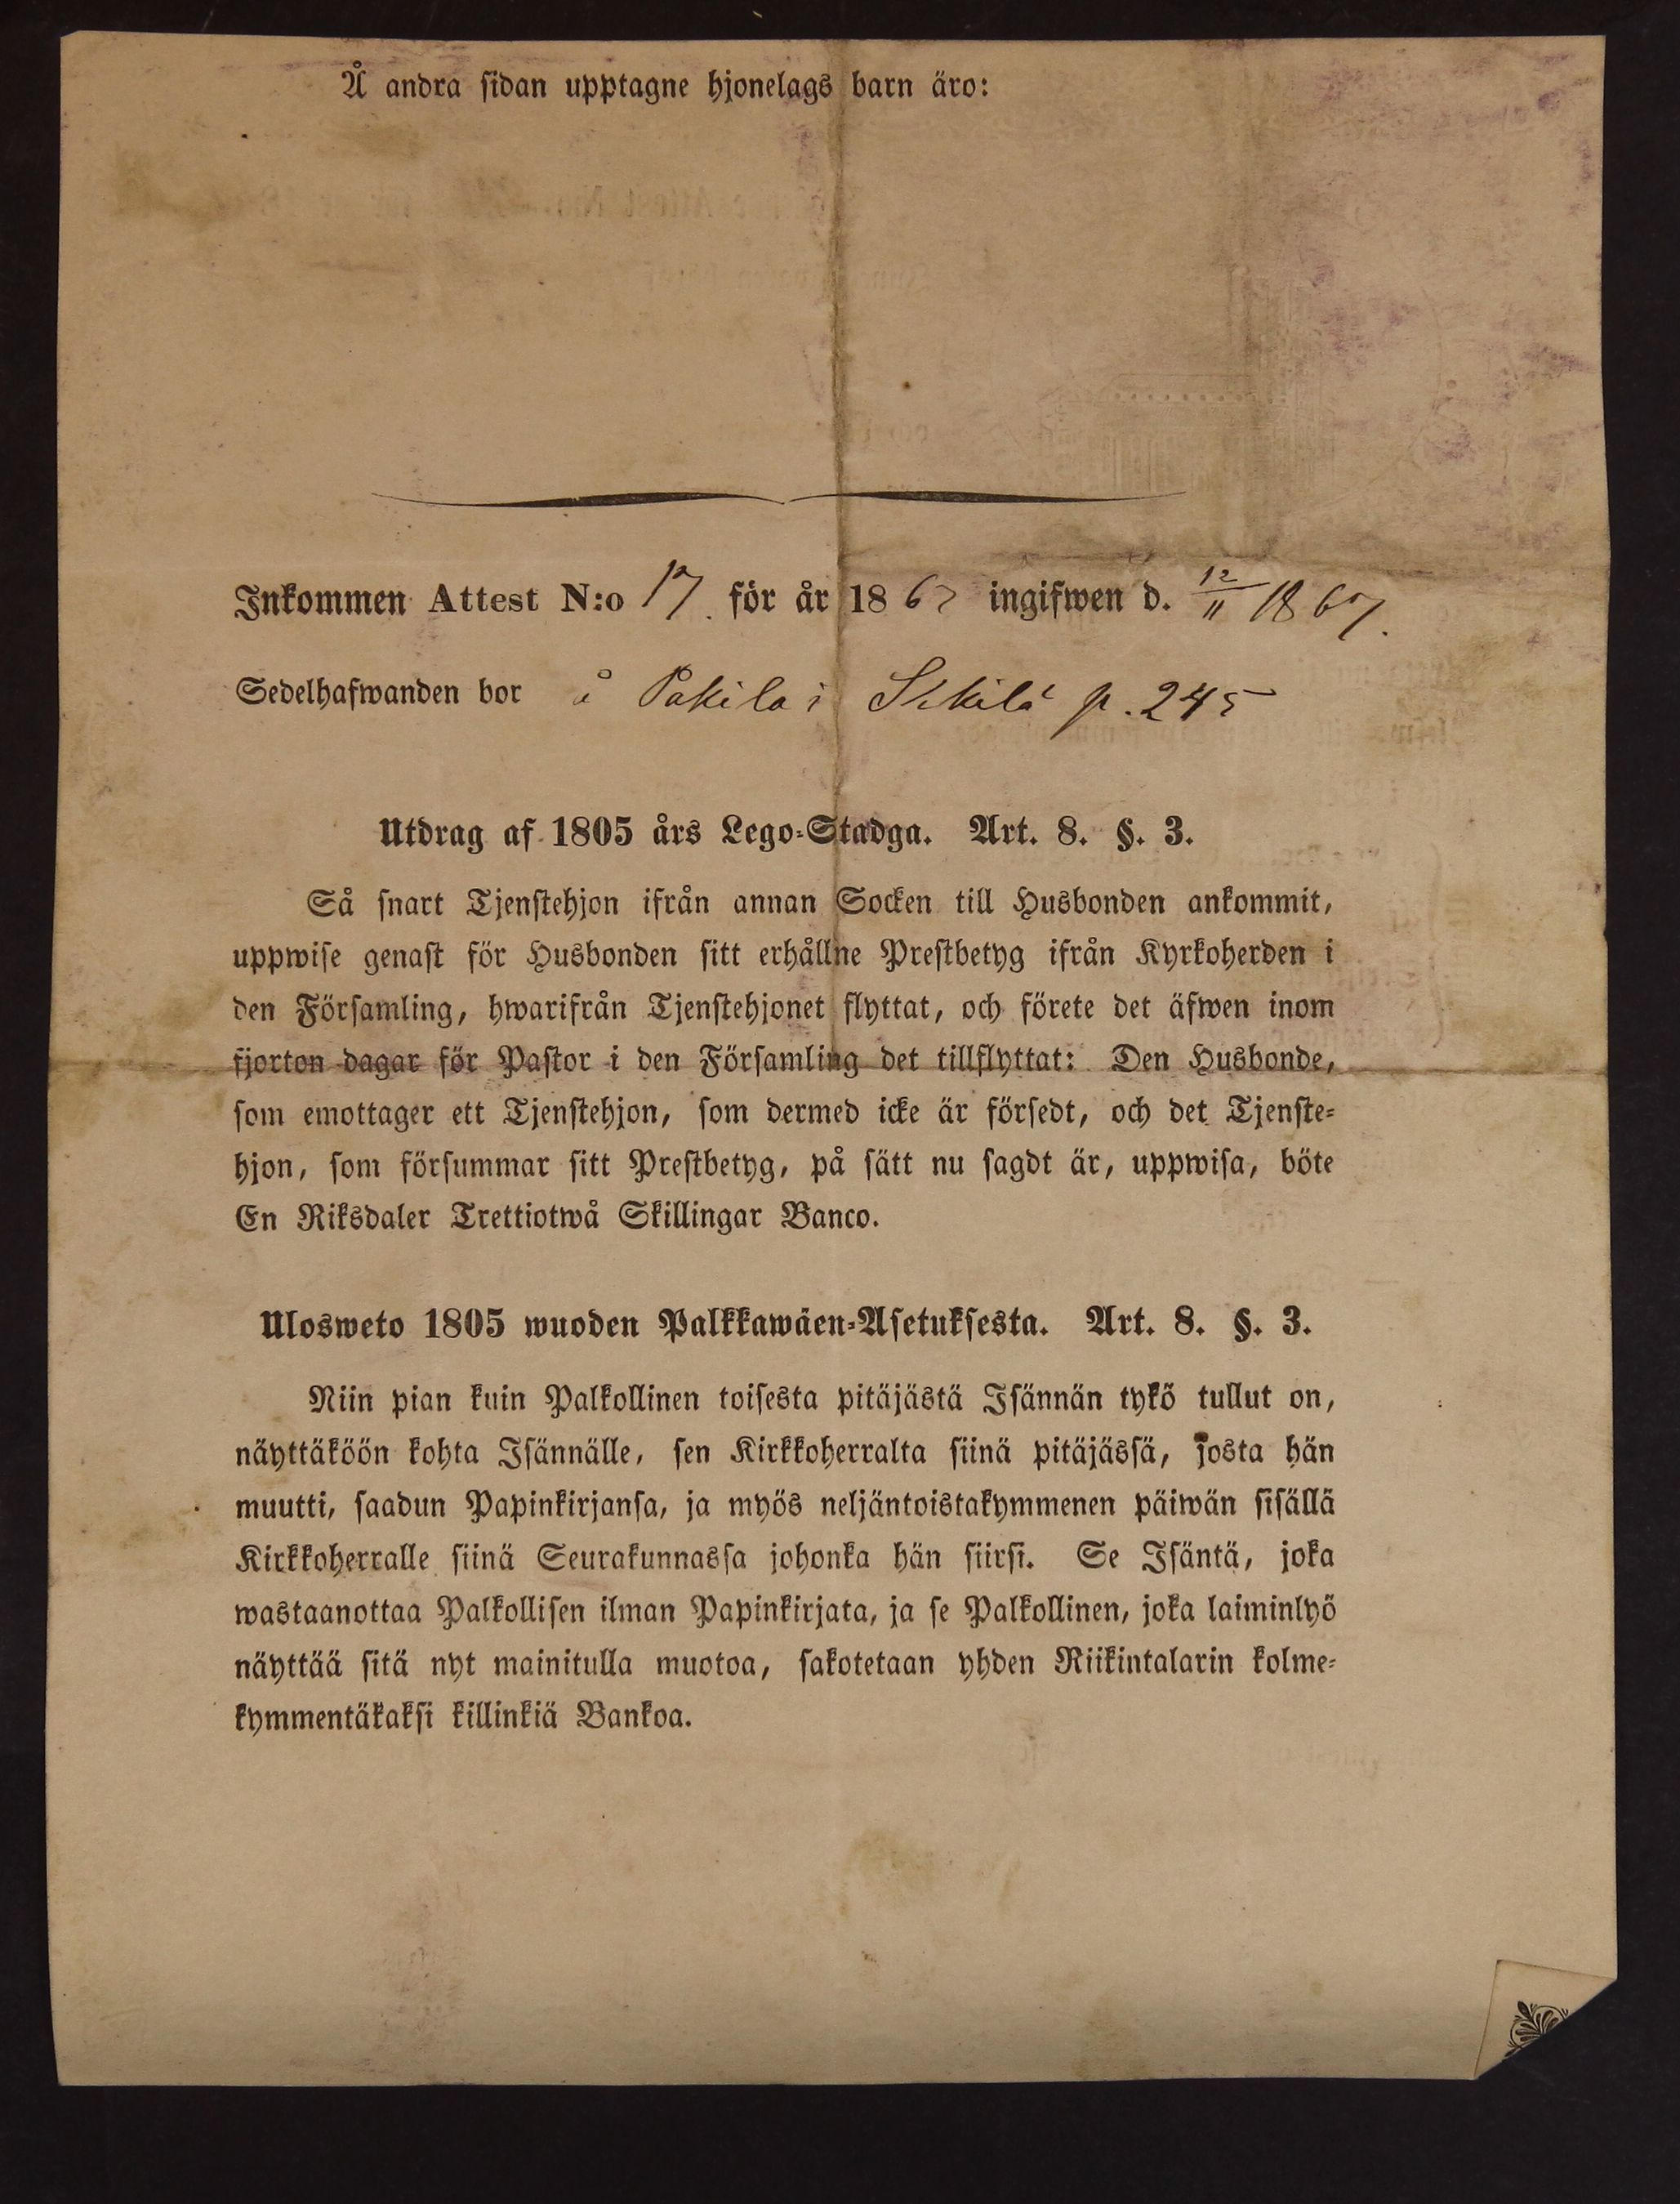 Å andra sidan upptagne hjonelags barn äro:
Inkommen Attest N:o 17. för år 1867 ingifwen d. 12/11 1867.
Sedelhafwanden bor å Pakila i p. 245
Utdrag af 1805 års Lego-Stadga. Art. 8. §. 3.
Så snart Tjenstehjon ifrån annan Socken till Husbonden ankommit,
uppwise genast för Husbonden sitt erhållne Prestbetyg ifrån Kyrkoherden i
den Församling, hwarifrån Tjenstehjonet flyttat, och förete det äfwen inom
fjorton dagar för Pastor i den Församling det tillflyttat: Den Husbonde,
som emottager ett Tjenstehjon, som dermed icke är försedt, och det Tjenste-
hjon, som försummar sitt Prestbetyg, på sätt nu sagdt är, uppwisa, böte
En Riksdaler Trettiotwå Skillingar Banco.
Ulosweto 1805 wuoden Palkkawäen-Asetuksesta. Art. 8. §. 3.
Niin pian kuin Palkollinen toisesta pitäjästä Isännän tykö tullut on,
näyttäköön kohta Isännälle, sen Kirkkoherralta siinä pitäjässä, josta hän
muutti, saadun Papinkirjansa, ja myös neljäntoistakymmenen päiwän sisällä
Kirkkoherralle siinä Seurakunnassa johonka hän siirsi. Se Isäntä, joka
wastaanottaa Palkollisen ilman Papinkirjata, ja se Palkollinen, joka laiminlyö
näyttää sitä nyt mainitulla muotoa, sakotetaan yhden Riikintalarin kolme-
kymmentäkaksi killinkiä Bankoa.